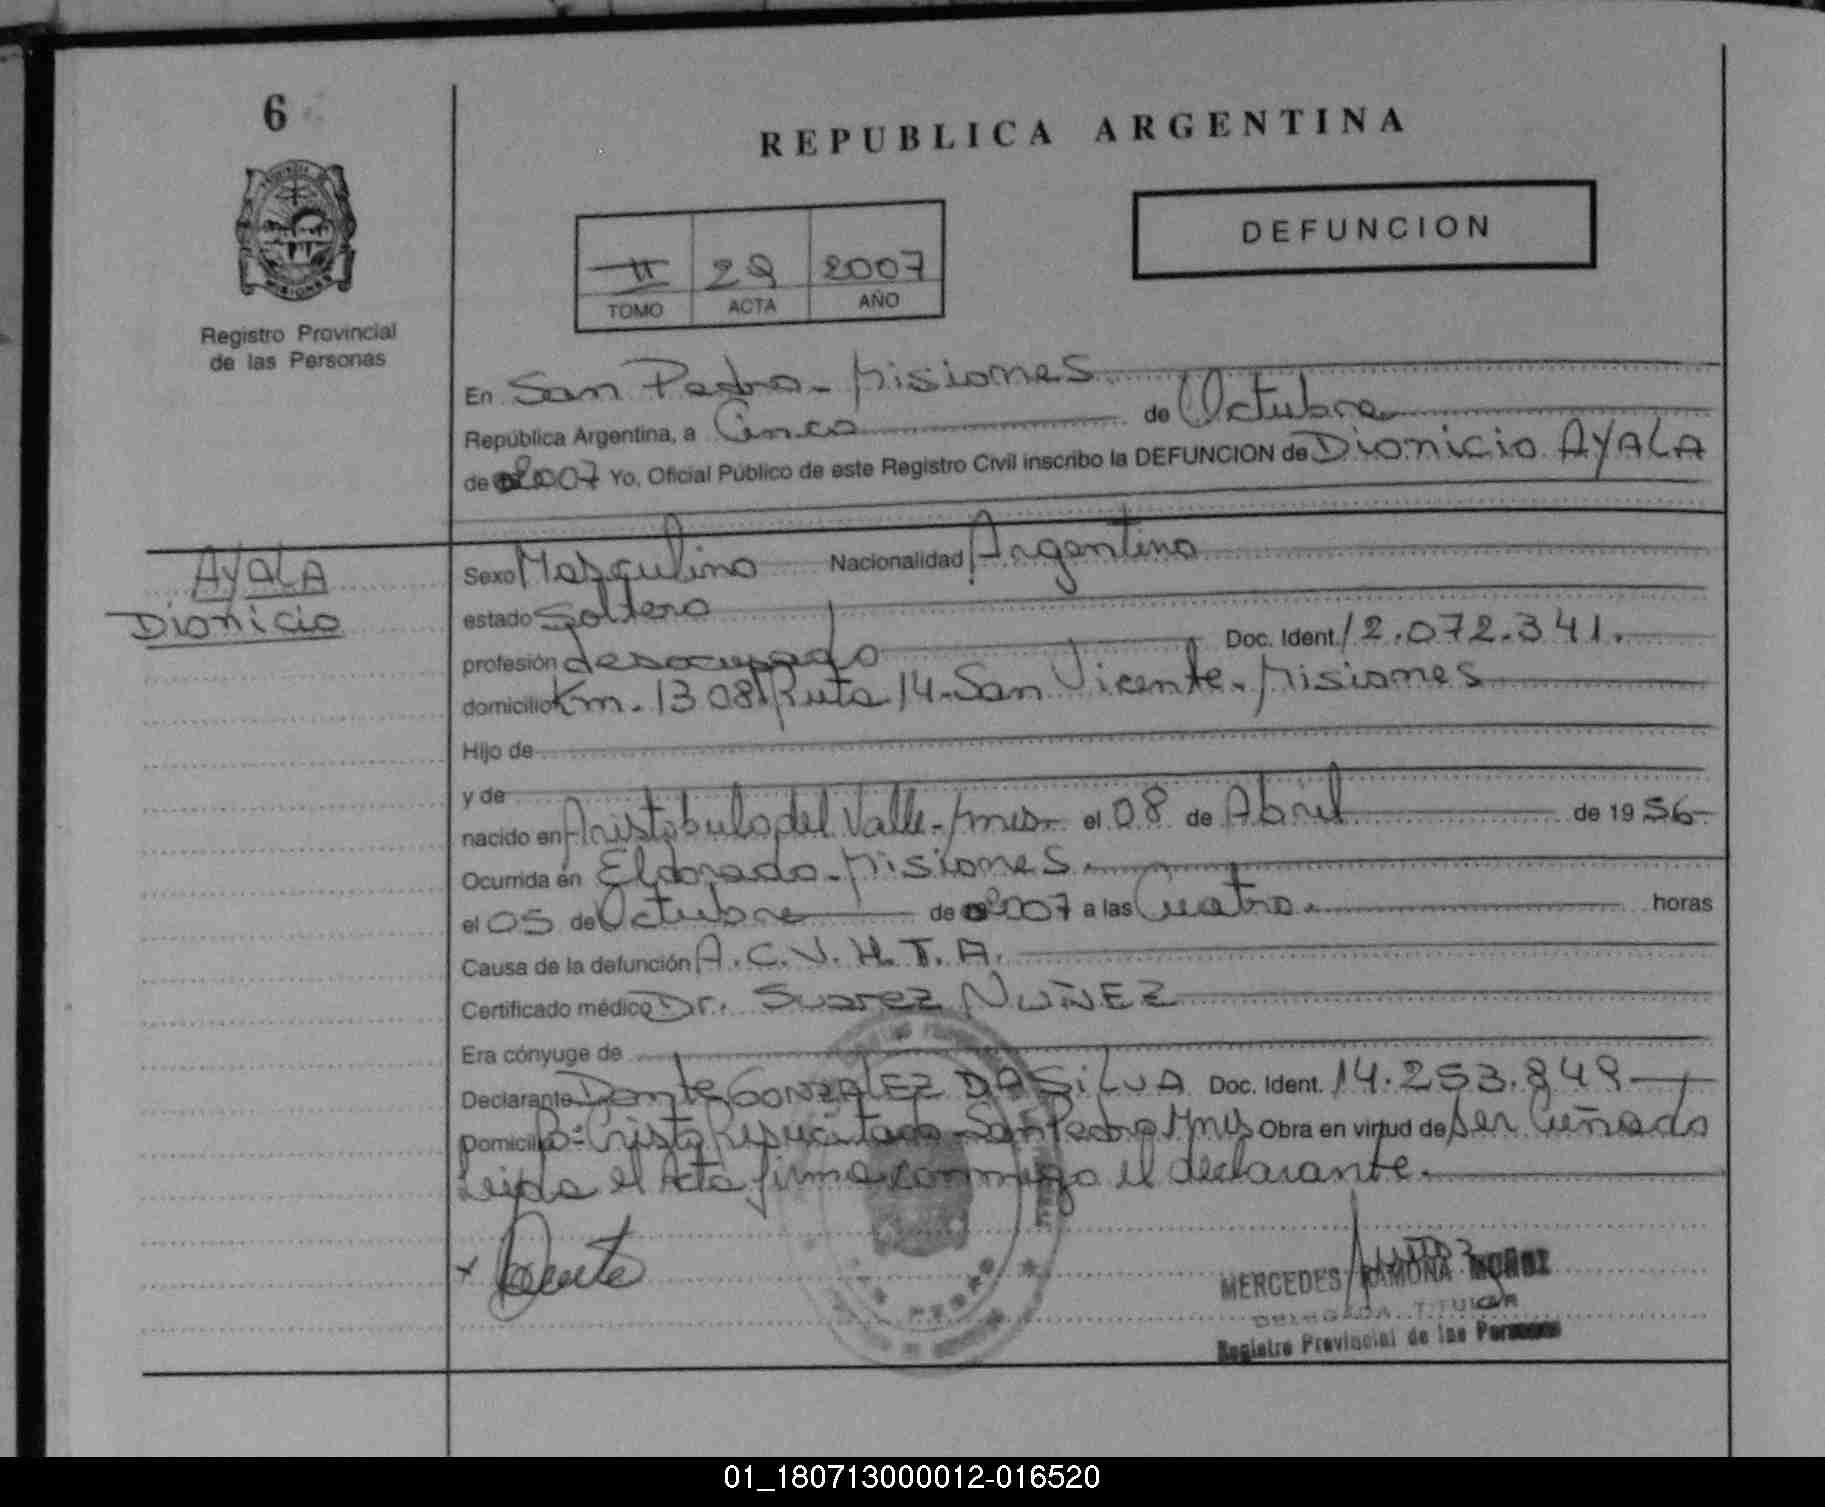 6
REPUBLICA ARGENTINA
DEFUNCION
II 29 2007
TOMO ACTA AÑO
Registro Provincial
de las Personas
En San Pedro - Misiones
República Argentina, a Cinco de Octubre
de 2007 Yo, Oficial Público de este Registro Civil inscribo la DEFUNCION de Dionicio AYALA
AYALA
Dionicio
Sexo Masculino Nacionalidad Argentino
estado Soltero
profesión desocupado Doc. Ident. 12.072.341.
domicilio Km. 1308 Ruta 14 - San Vicente - Misiones
Hijo de
y de
nacido en Aristobulo del Valle - Mnes - el 08 de Abril de 1956-
Ocurrida en Eldorado - Misiones
el 05 de Octubre de 2007 a las Cuatro. horas
Causa de la defunción A.C.V. H.T.A.
Certificado médico Dr. Suarez NUÑEZ
Era cónyuge de
Declarante Dante GONZALEZ DA SILVA Doc. Ident. 14.253.849
Domicilio B= Cristo Resucitado - San Pedro Mnes Obra en virtud de Ser Cuñado
Leida el Acta firma conmigo el declarante.
x Dante
MERCEDES RAMONA MUÑOZ
DELEGADA TITULAR
Registro Provincial de las Personas
01_180713000012-016520